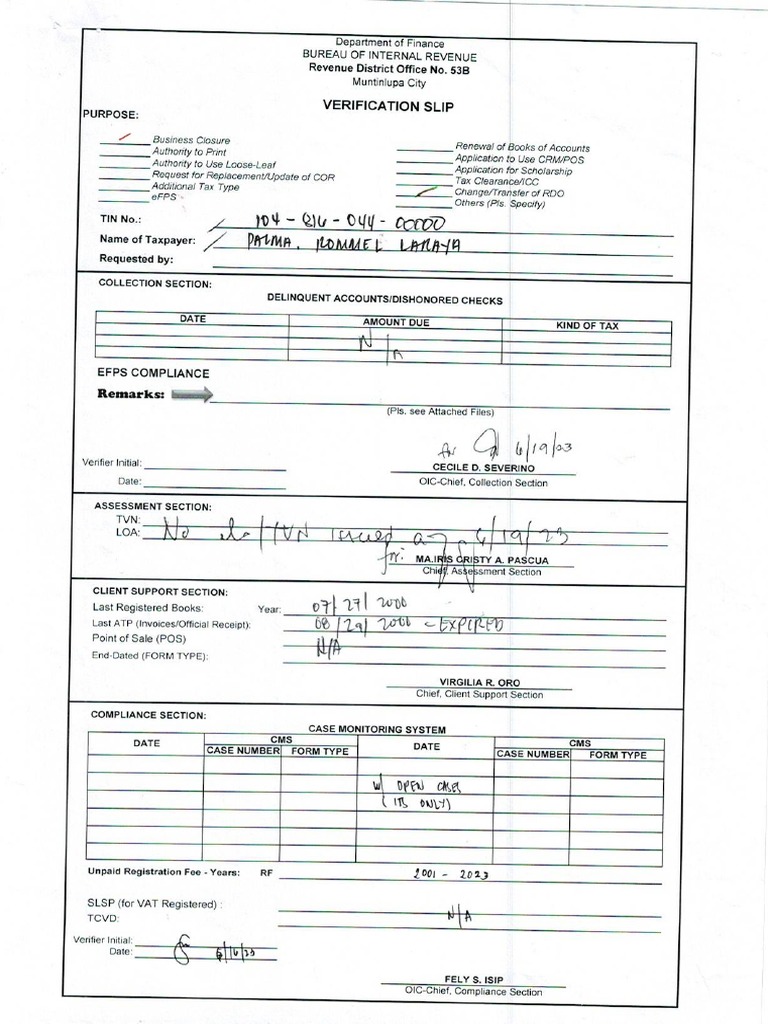 Department of Finance
BUREAU OF INTERNAL REVENUE
Revenue District Office No. 53B
Muntinlupa City
VERIFICATION SLIP
PURPOSE:
Business Closure
Authority to Print
Authority to Use Loose-Leaf
Request for Replacement/Update of COR
Additional Tax Type
eFPS
Renewal of Books of Accounts
Application to Use CRM/POS
Application for Scholarship
Tax Clearance/ICC
Change/Transfer of RDO
Others (Pls. Specify)
TIN No.: 104 - 816 - 044 - 00000
Name of Taxpayer: PALMA, ROMMEL LARAYA
Requested by:
COLLECTION SECTION:
DELINQUENT ACCOUNTS/DISHONORED CHECKS
DATE AMOUNT DUE KIND OF TAX
N/A
EFPS COMPLIANCE
Remarks:
(Pls. see Attached Files)
6/19/23
Verifier Initial:
CECILE D. SEVERINO
Date:
OIC-Chief, Collection Section
ASSESSMENT SECTION:
TVN:
LOA: No eLA/TVN issued 6/19/23
for:
MA.IRIS CRISTY A. PASCUA
Chief, Assessment Section
CLIENT SUPPORT SECTION:
Last Registered Books: Year: 07/27/2000
Last ATP (Invoices/Official Receipt): 08/29/2000 - EXPIRED
Point of Sale (POS) N/A
End-Dated (FORM TYPE):
VIRGILIA R. ORO
Chief, Client Support Section
COMPLIANCE SECTION:
CASE MONITORING SYSTEM
DATE CMS DATE CMS
CASE NUMBER FORM TYPE CASE NUMBER FORM TYPE
w/ OPEN CASES
(ITS ONLY)
Unpaid Registration Fee - Years: RF 2001 - 2023
SLSP (for VAT Registered) :
TCVD: N/A
Verifier Initial:
Date: 6/16/23
FELY S. ISIP
OIC-Chief, Compliance Section